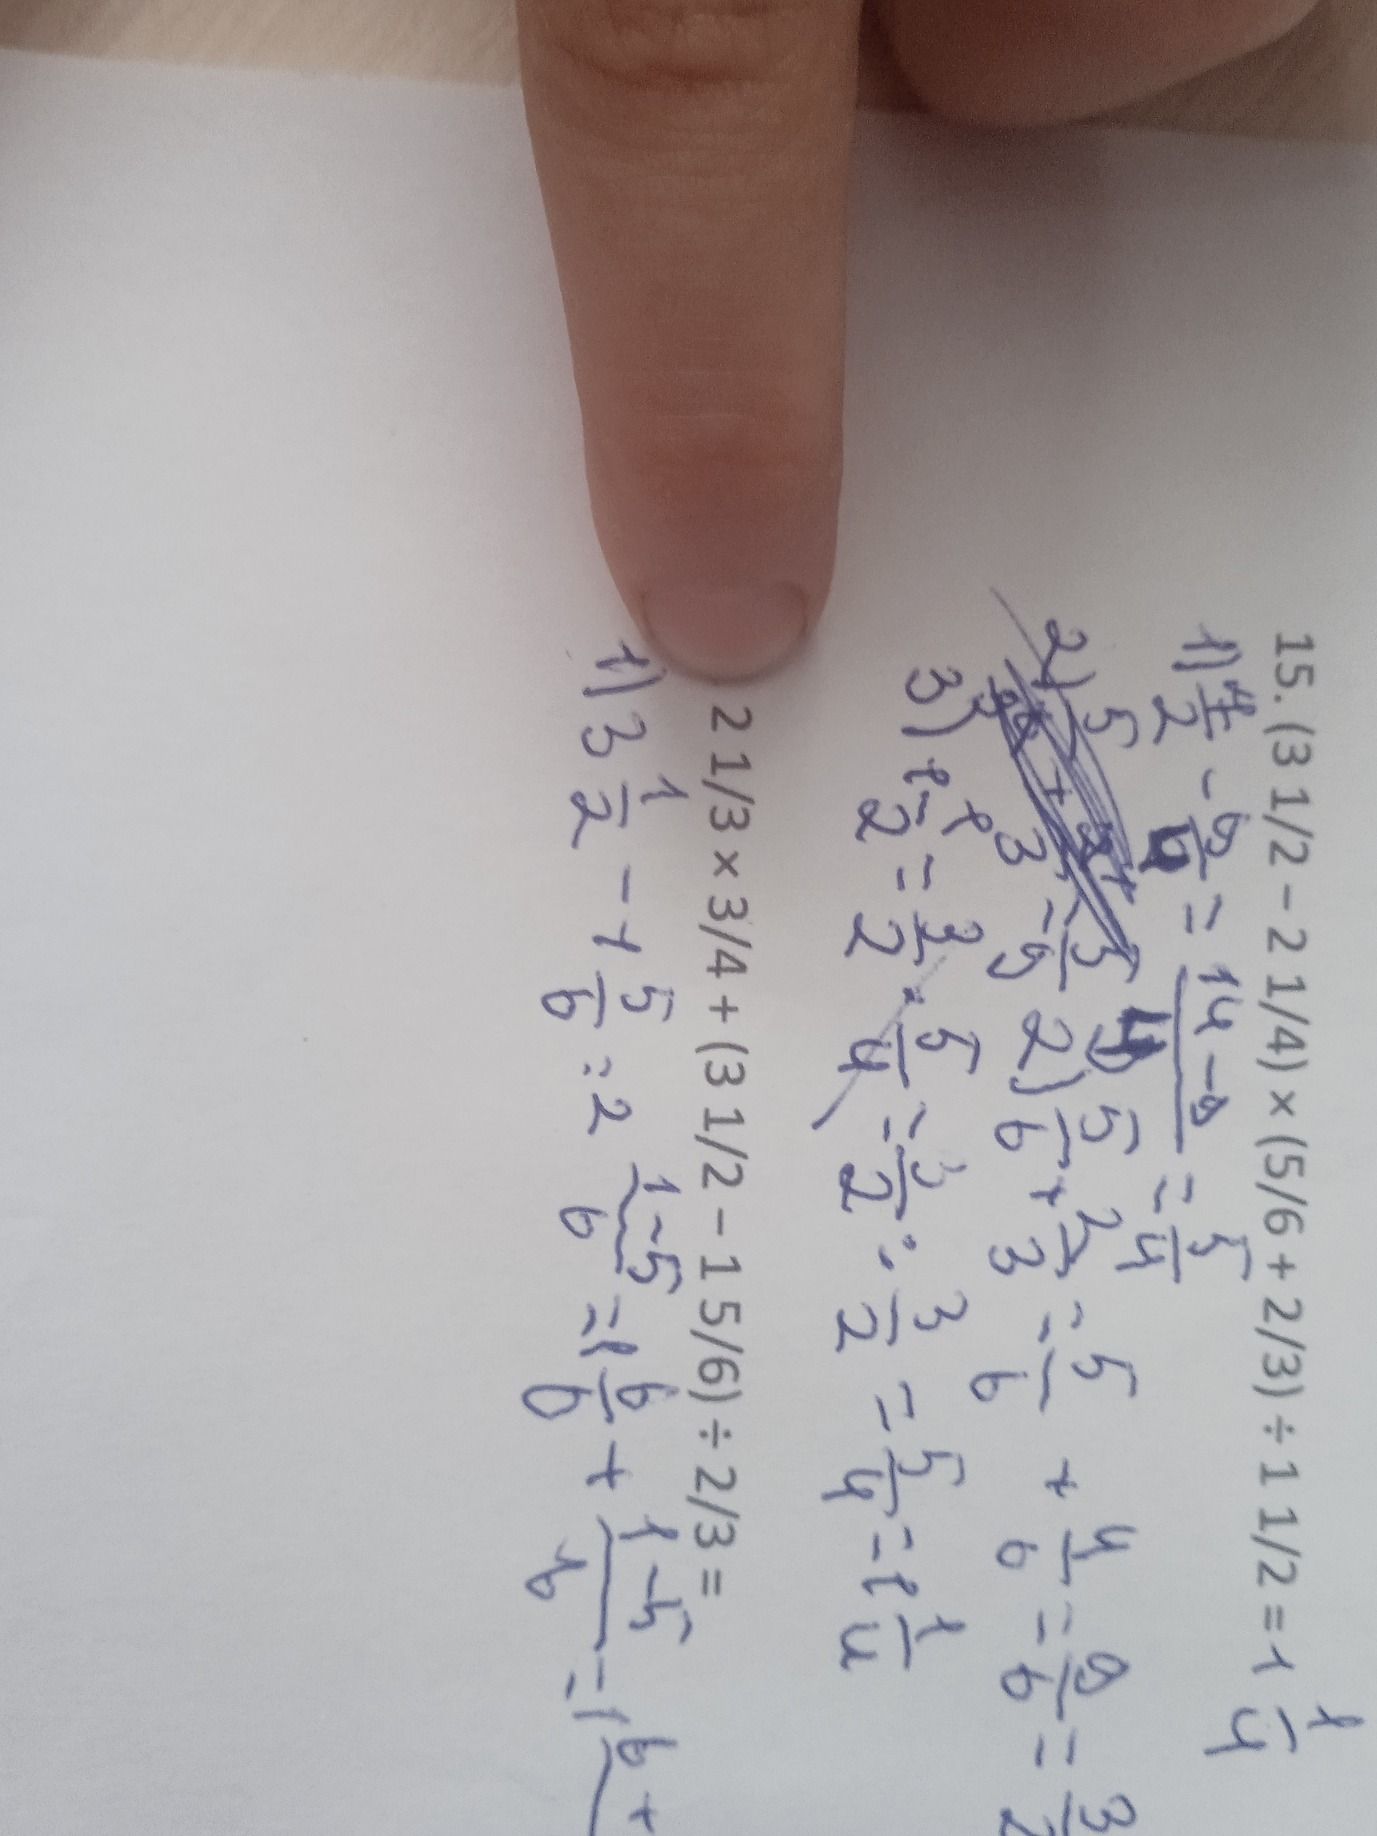 15. (3 1/2 – 2 1/4) × (5/6 + 2/3) ÷ 1 1/2 = 1 1/4
1) 7/2 - 9/4 = 14-9/4 = 5/4
2) 5/6 + 2/3 = 5/6 + 4/6 = 9/6 = 3/2
3) 1 1/2 = 3/2 · 5/4 = 3/2 : 3/2 = 5/4 = 1 1/4
2 1/3 × 3/4 + (3 1/2 – 1 5/6) ÷ 2/3 =
1) 3 1/2 - 1 5/6 : 2 1-5/6 = 1 6/6 + 1-5/6 = 1 6+